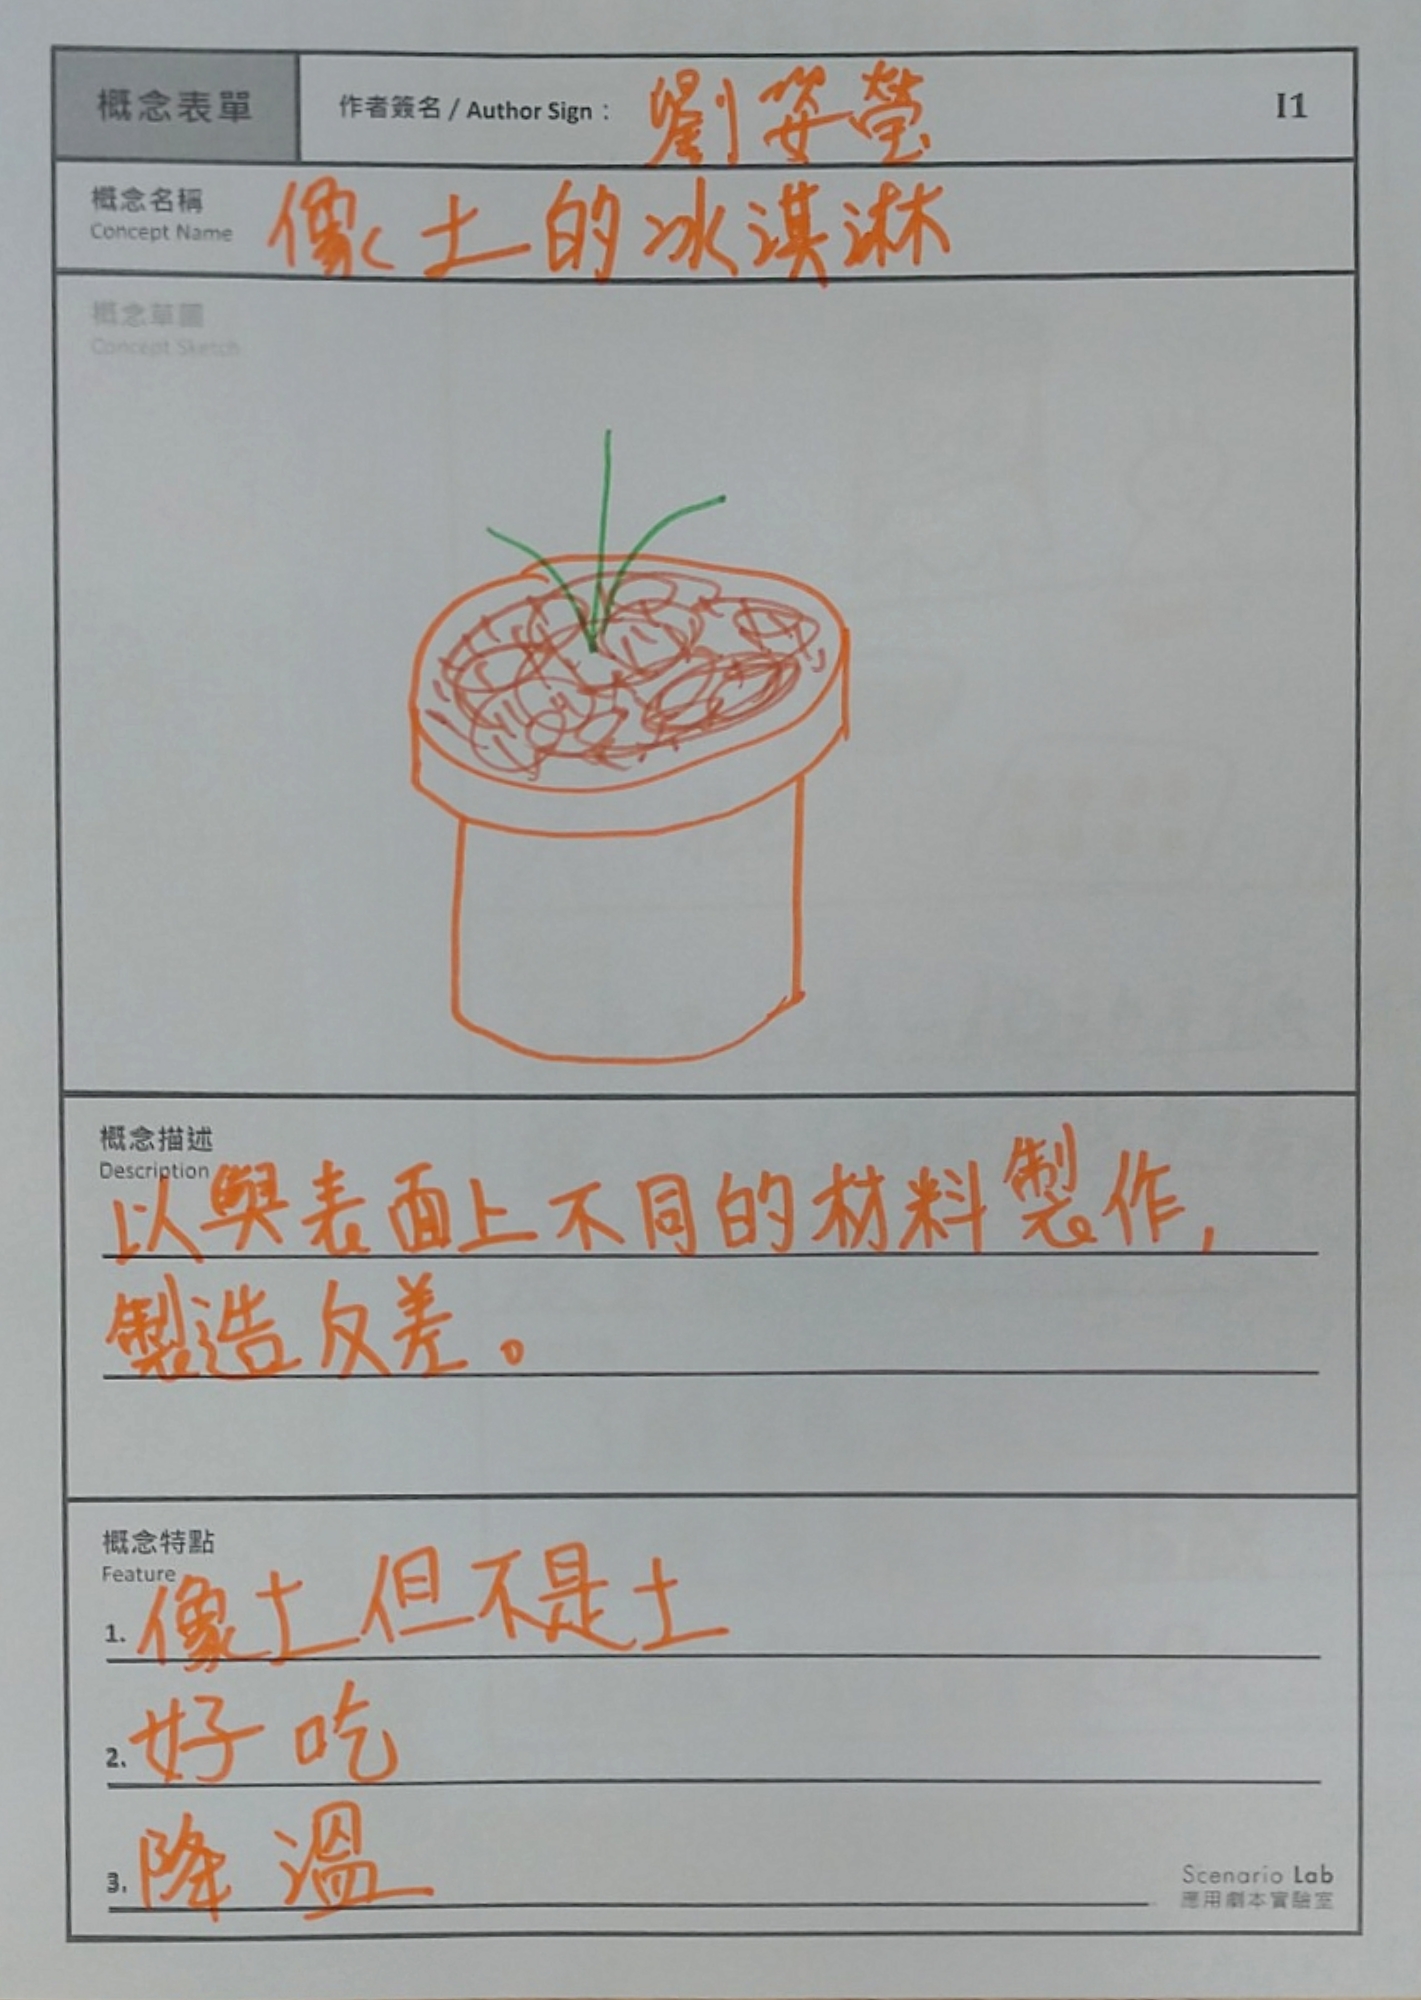 概念表單
作者簽名 / Author Sign : 劉姿瑩
I1
概念名稱
Concept Name
像土的冰淇淋
概念草圖
Concept Sketch
概念描述
Description
以與表面上不同的材料製作,
製造反差。
概念特點
Feature
1. 像土但不是土
2. 好吃
3. 降溫
Scenario Lab
應用劇本實驗室